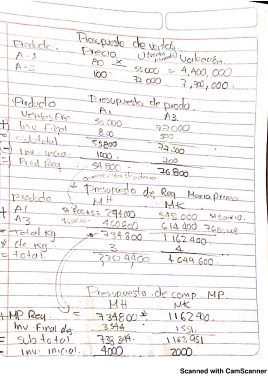 Presupuesto de ventas
Producto. Precio U Valuación.
A-1 80 x 55000 = 4,400,000
A-3 100 77000 7,700,000.
Producto Presupuesto de produ.
A1 A3
Ventas 55000 77000
+ Inv Final 800 500
= Subtotal 55800 77500
- Inv. inicia. 1000 700
= Prod Req 54800 76800
Presupuesto de Req Materia Prima
Producto MH MK
+ A1 274000 548000
A3 460800 614400
= Total kg 734800 1162400
x de kg 3 4
= total 2204400 4649600
Presupuesto de comp. MP.
MH MK
+ MP Req 734800 1162400.
Inv. Final de 3544 1551.
= Subtotal 738344. 1163951
- Inv. inicial. 4000 2000
Scanned with CamScanner